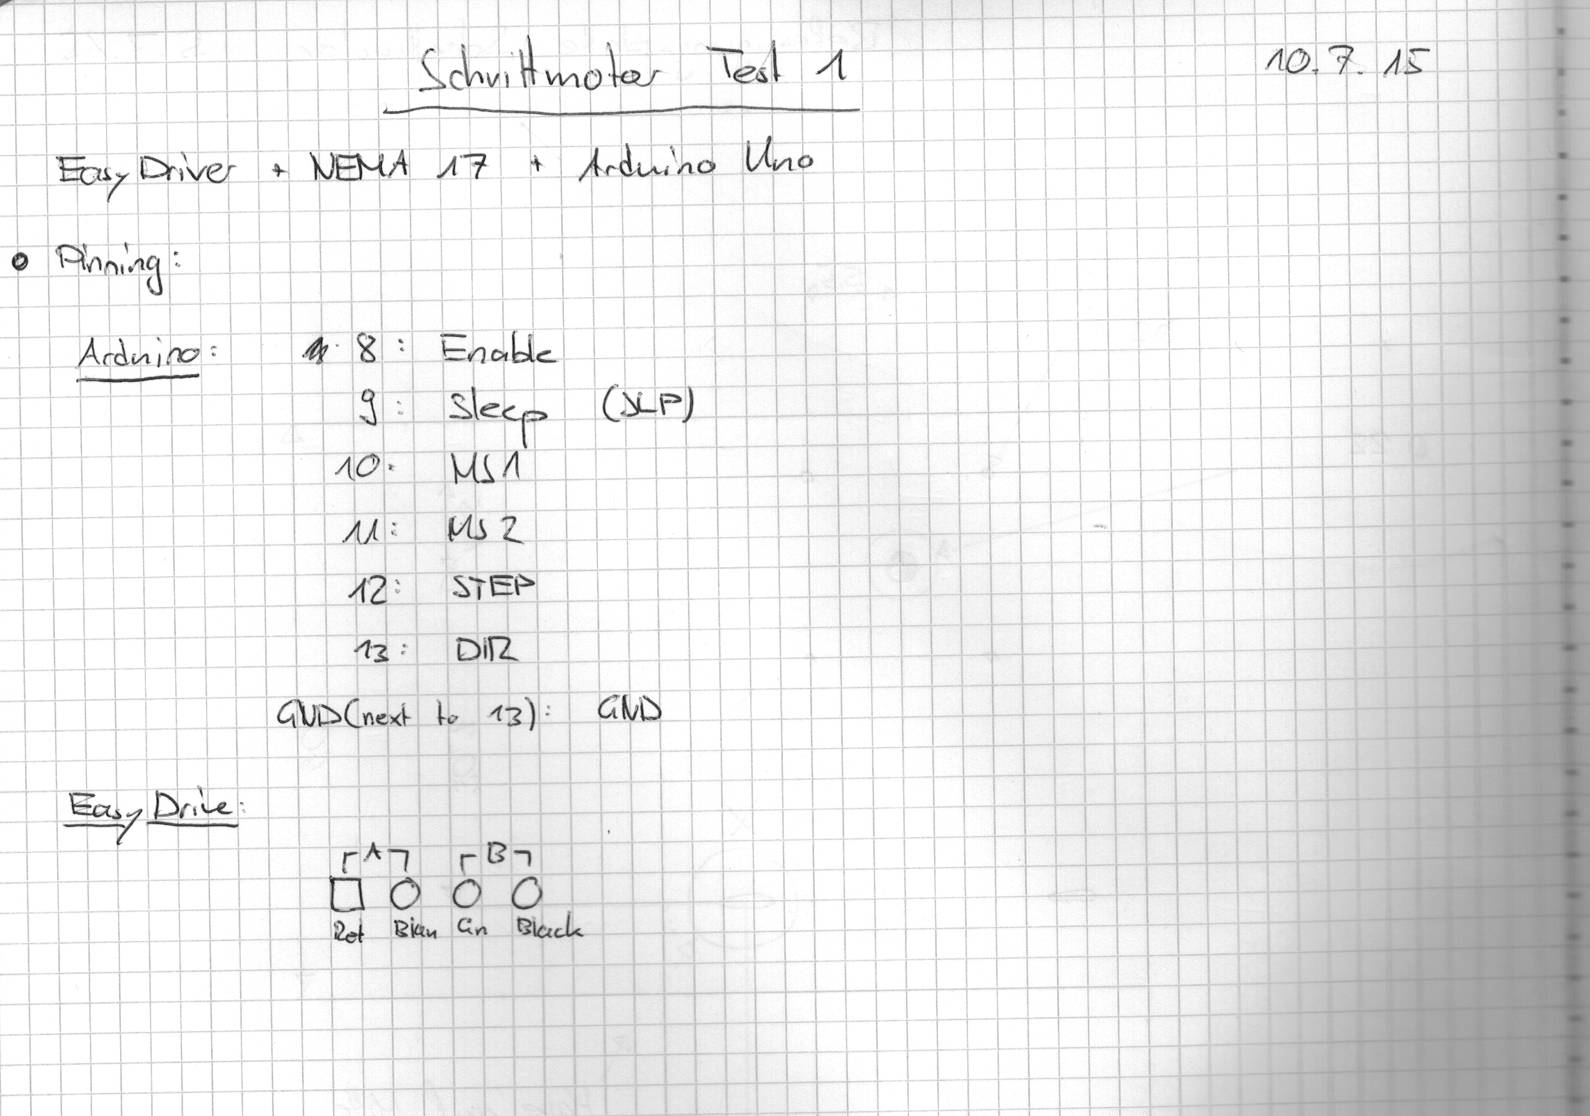 Schrittmotor Test 1
10.7.15
EasyDriver + NEMA 17 + Arduino Uno
Pinning:
Arduino: 8: Enable
9: Sleep (SLP)
10: MS1
11: MS2
12: STEP
13: DIR
GND (next to 13): GND
Easy Drive:
A B
Rot Blau Gn Black